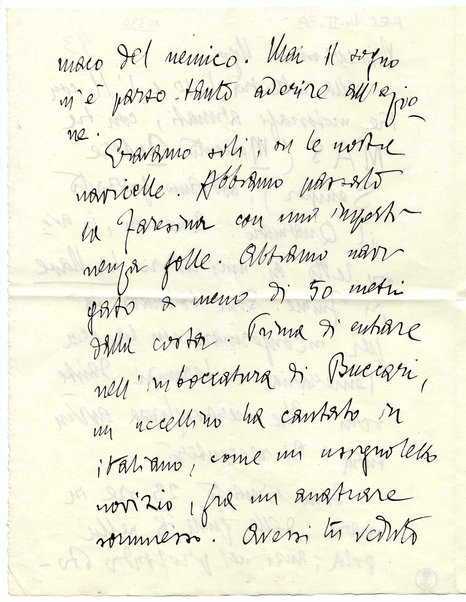 maco del nemico. Mai il sogno
m'è parso tanto aderire all'azio-
ne.
Eravamo soli, su le nostre
navicelle. Abbiamo passato
la Faresina con una imperti-
nenza folle. Abbiamo navi
gato a meno di 50 metri
dalla costa. Prima di entrare
nell'imboccatura di Buccari,
un uccellino ha cantato in
italiano, come un usignoletto
novizio, fra un
sommesso. Avessi tu veduto